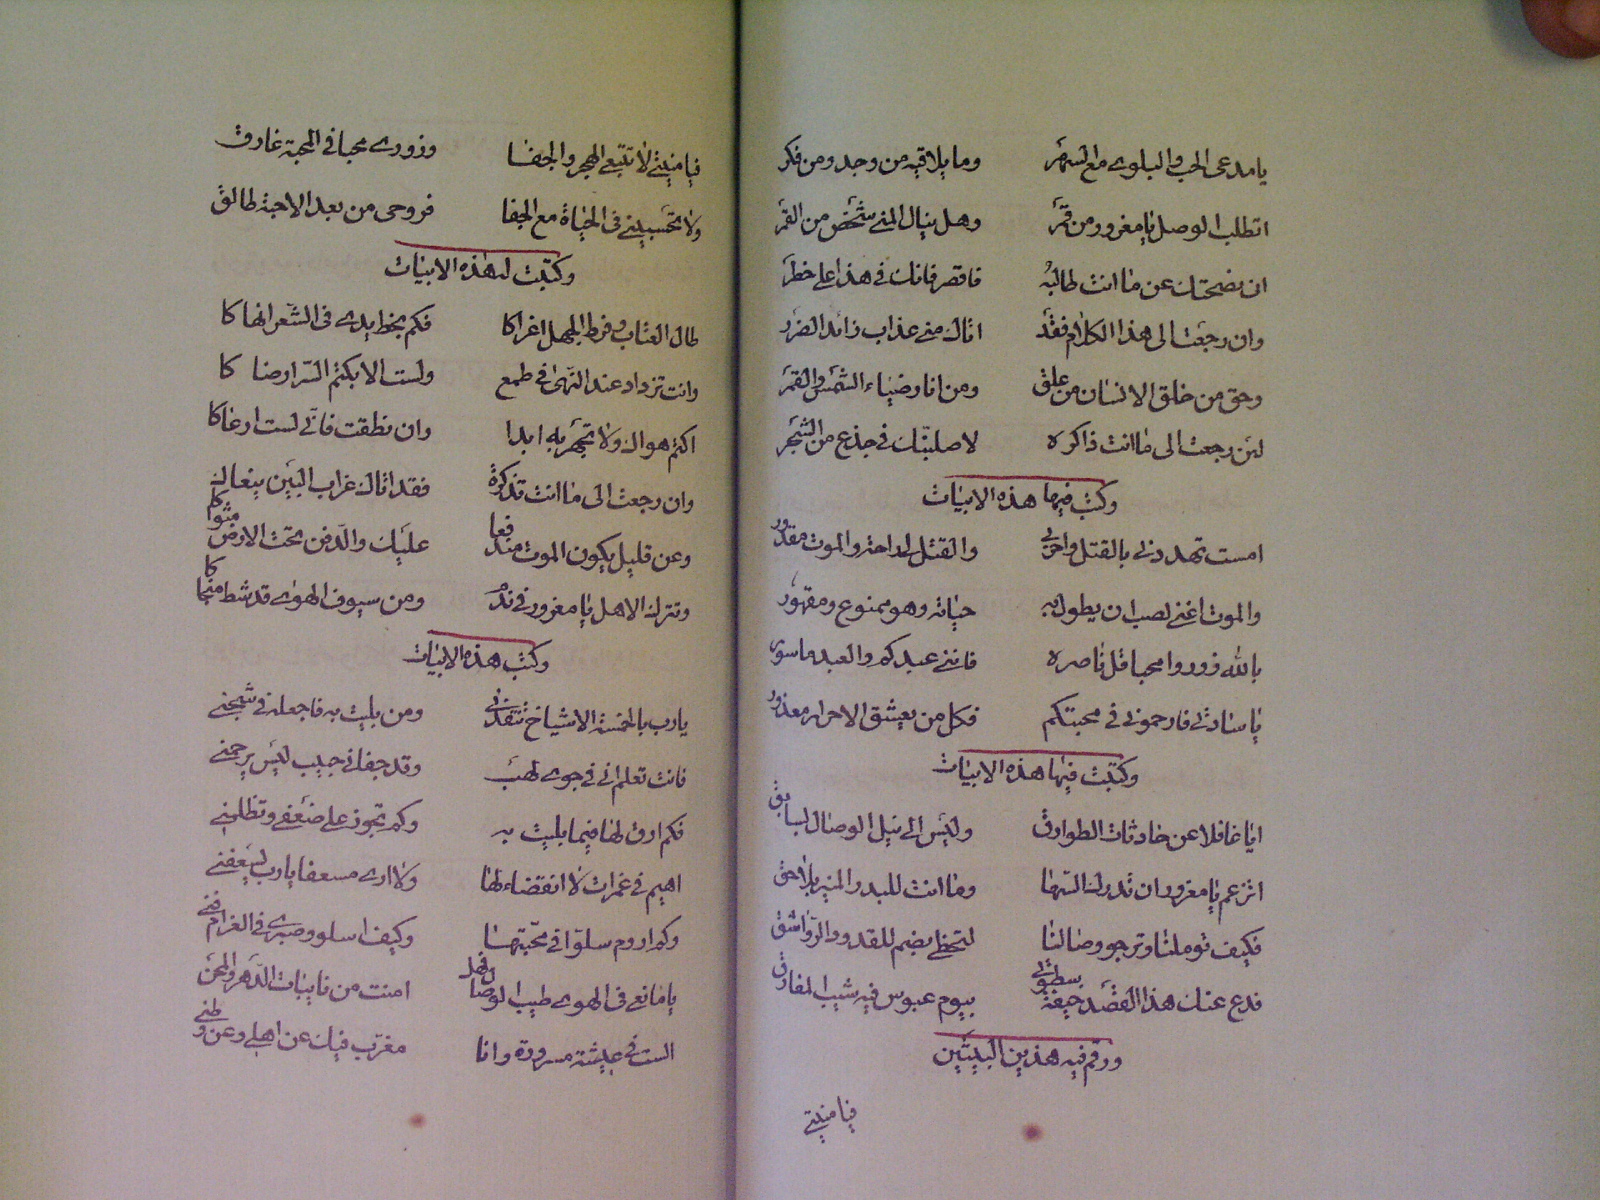 يا مدعى الحب والبلوى مع السهر وما يلاقيه من وجد ومن فكر
اتطلب الوصل يا مغرور من قمر وهل ينال المنى شخص من القمر
انى نصحتك عن ما انت طالبه فاقصر فانك فى هذا على خطر
وان رجعت الى هذا الكلام فقد اتاك منى عذاب زائد الضرر
وحق من خلق الانسان من علق ومن انار ضياء الشمس والقمر
لئن رجعت الى ما انت ذاكره لاصلبنك فى جذع من الشجر
وكتب فيها هذه الابيات
امست تهددنى بالقتل واحربى والقتل لى راحة والموت مقدور
والموت اغنى لصب ان يطول به حياته وهو ممنوع ومقهور
بالله زوروا محبا قل ناصره فاننى عبدكم والعبد ماسور
يا سادتى فارحمونى فى محبتكم فكل من يعشق الاحرار معذور
وكتبت فيها هذه الابيات
ايا غافلا عن حادثات الطوارق وليس الى نيل الوصال بسابق
اتزعم يا مغرور ان تدرك السها وما انت للبدر المنير بلاحق
فكيف توملنا وترجو وصالنا لتحظى بضم للقدود الرواشق
فدع عنك هذا القصد خيفة سطوتى بيوم عبوس فيه شيب المفارق
ورقم فيه هذين البيتين
فيا منيتى
فيا منيتى لا تتبعى الهجر والجفا وزورى محبا فى المحبة غارق
ولا تحسبينى فى الحياة مع الجفا فروحى من بعد الاحبة طالق
وكتبت له هذه الابيات
طال العتاب وفرط الجهل اغراكا فكم بخط يدى فى الشعر انهاكا
وانت تزداد عند النهى فى طمع ولست الا بكتم السر ارضاكا
اكتم هواك ولا تجهر به ابدا وان نطقت فانى لست ارعاكا
وان رجعت الى ما انت تذكرة فقد اتاك غراب البين ينعاك
وعن قليل يكون الموت مندفعا عليك والدفن تحت الارض مثواكا
وتترك الاهل يا مغرور فى ندم ومن سيوف الهوى قد شط منجاكا
وكتب هذه الابيات
يارب بالخمسة الاشياخ تنقذنى ومن بليت به فاجعله فى شجنى
فانت تعلم انى فى جوى لهب وقد جفانى حبيب ليس يرحمنى
فكم ارق لها فيما بليت به وكم تجور على ضعفى وتظلمنى
اهيم فى غمرات لا انقضاء لها ولا ارى مسعفا يارب يسعفنى
وكم اروم سلوا فى محبتها وكيف اسلو وصبرى فى الغرام فنى
يا مانعى فى الهوى طيب الوصال فهل امنت من نايبات الدهر والمحن
الست فى عيشة مسرورة وانا مغرب فيك عن اهلى وعن وطنى